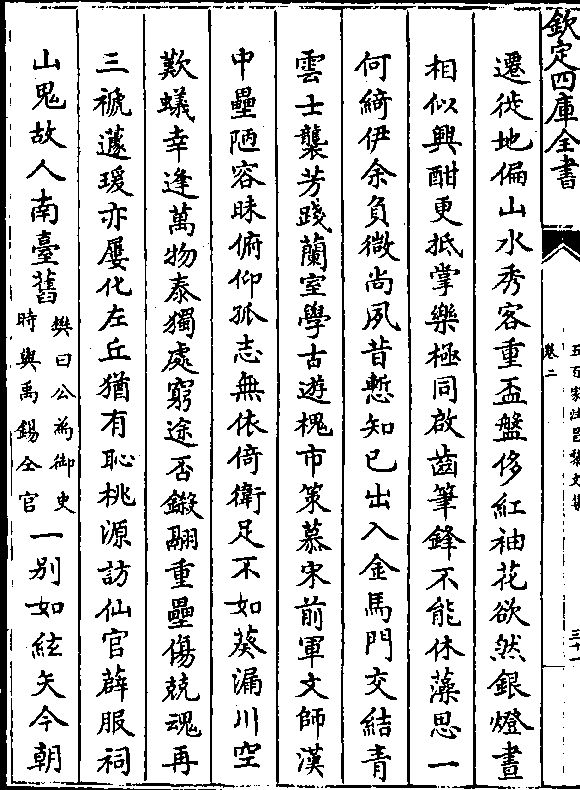 欽定四庫全書
卷二
遷徙地偏山水秀客重盃盤侈紅袖花欲然銀燈晝
相似興酣更抵掌樂極同啟齒筆鋒不能休藻思一
何綺伊余負微尚夙昔慙知已出入金馬門交結青
雲士襲芳踐蘭室學古遊槐市策慕宋前軍文師漢
中壘陋容昧俯仰孤志無依倚衛足不如葵漏川空
歎蟻幸逢萬物泰獨處窮途否鎩翮重疊傷兢魂再
三褫蘧瑗亦屢化左丘猶有恥桃源訪仙官薜服祠
山鬼故人南臺舊樊曰公為御史時與禹錫仝官一别如絃矢今朝